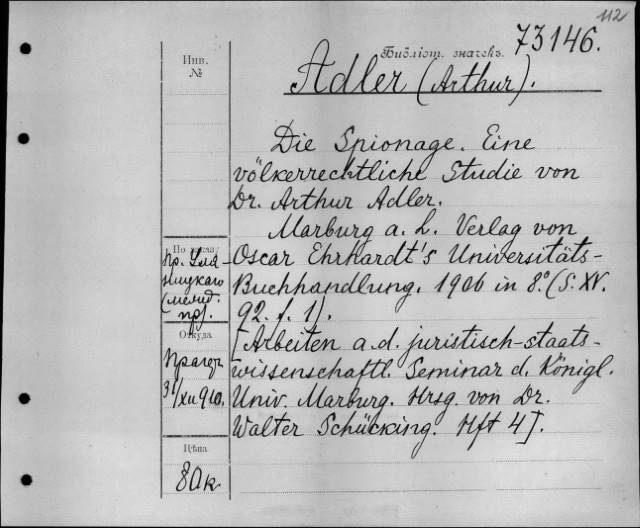 112
Библіот. значекъ
73146.
Инв.
№
Adler (Arthur).
Die Spionage. Eine
völkerrechtliche Studie von
Dr. Arthur Adler.
Marburg a. L. Verlag von
Oscar Ehrhardt's Universitäts-
Buchhandlung. 1906 in 8.° (S. XV.
92. f. 1).
[Arbeiten a. d. juristisch-staats-
wissenschaftl. Seminar d. Königl.
Univ. Marburg. Hrsg. von Dr.
Walter Schücking. Hft 4].
По заказу
пр. Уля-
ницкаго
пр).
Откуда
Прагеръ
31/XII 910.
Цѣна
80 к